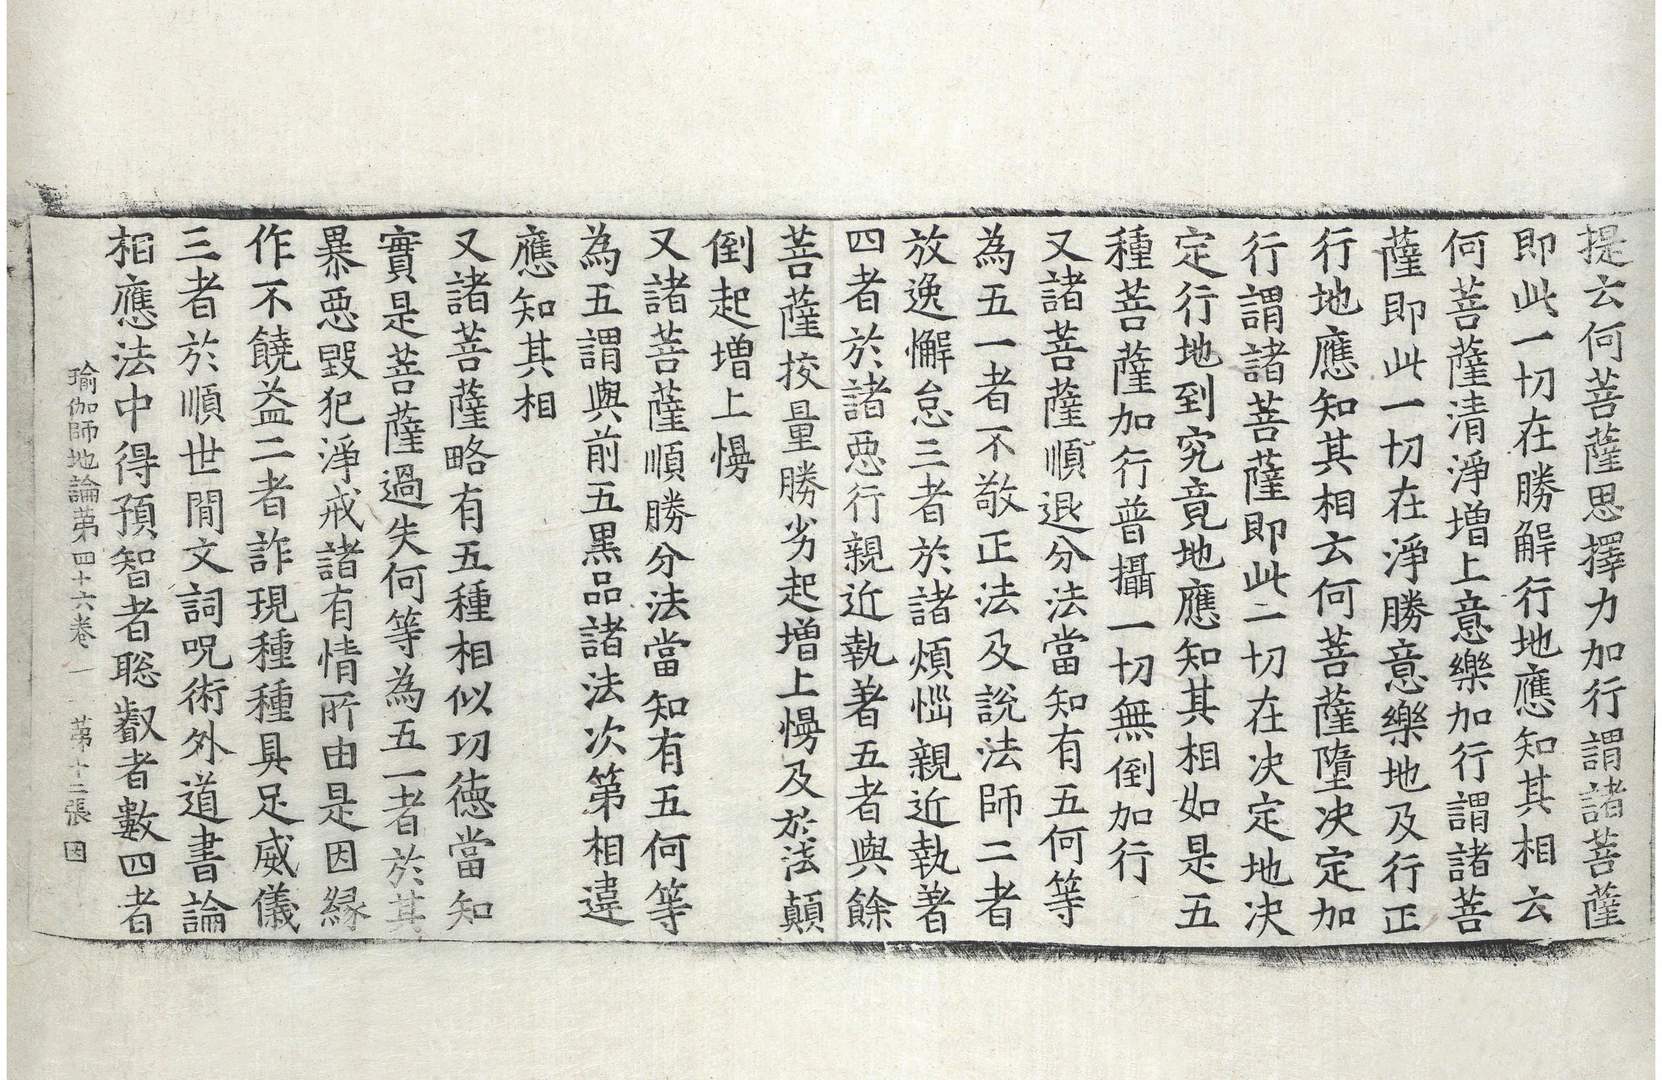 提云何菩薩思擇力加行謂諸菩薩
即此一切在勝解行地應知其相云
何菩薩清淨增上意樂加行謂諸菩
薩即此一切在淨勝意樂地及行正
行地應知其相云何菩薩墮决定加
行謂諸菩薩即此一切在决定地决
定行地到究竟地應知其相如是五
種菩薩加行普攝一切無倒加行
又諸菩薩順退分法當知有五何等
為五一者不敬正法及說法師二者
放逸懈怠三者於諸煩惱親近執著
四者於諸惡行親近執著五者與餘
菩薩挍量勝劣起增上慢及於法顛
倒起增上慢
又諸菩薩順勝分法當知有五何等
為五謂與前五黑品諸法次第相違
應知其相
又諸菩薩略有五種相似功德當知
實是菩薩過失何等為五一者於其
暴惡毀犯淨戒諸有情所由是因緣
作不饒益二者詐現種種具足威儀
三者於順世間文詞呪術外道書論
相應法中得預智者聡叡者數四者
瑜伽師地論第四十六卷 第十二張 因